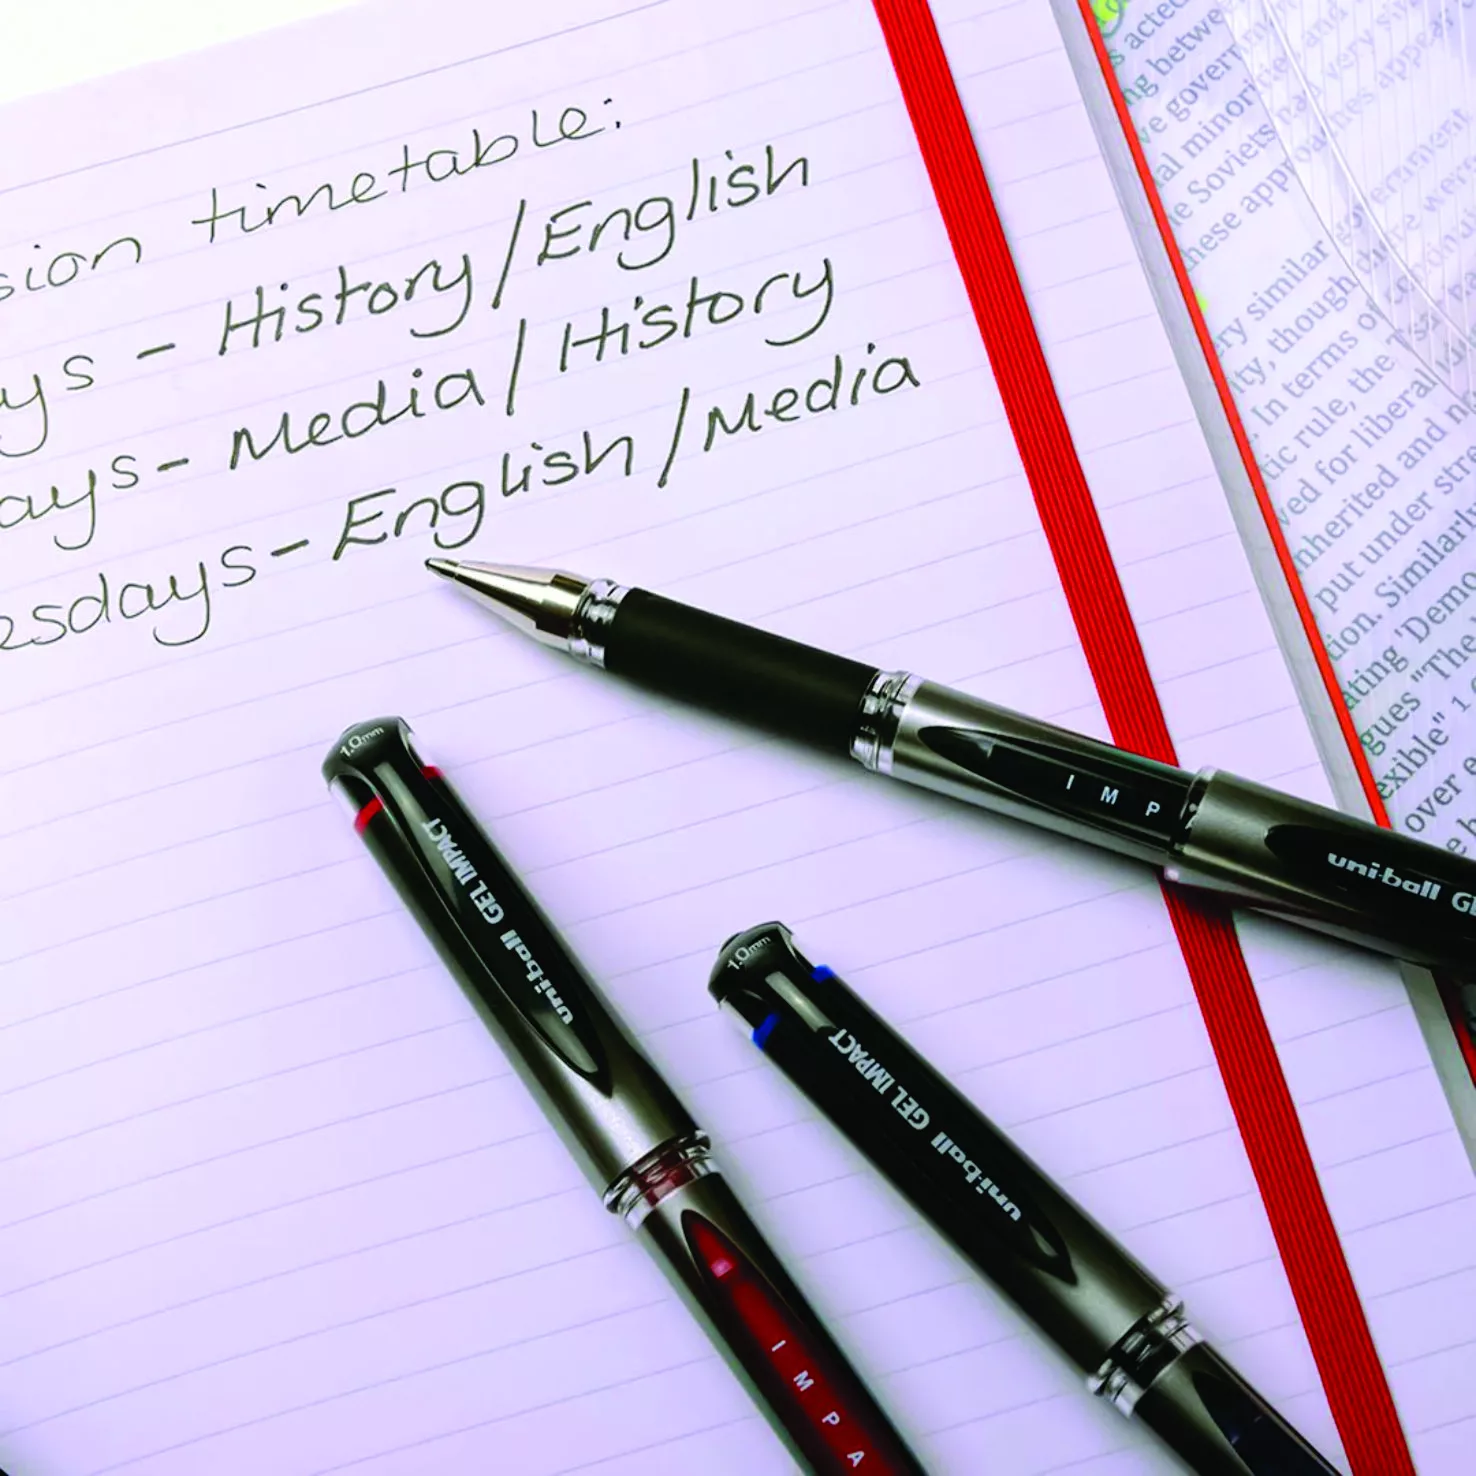 sion timetable:
ys - History/English
ays - Media/History
esdays - English/Media
IMP
uni-ball G
1.0mm
uni-ball GEL IMPACT
IMPA
1.0mm
uni-ball GEL IMPACT
s acted
ng betwe
ve governm
al minoritie
he Soviets had very si
these approaches appear
ry similar government
ity, though
. In terms of continui
tic rule, the
ved for liberal
inherited and n
put under stre
tion. Similarly
ating 'Demo
gues "The
exible" 1.
over e